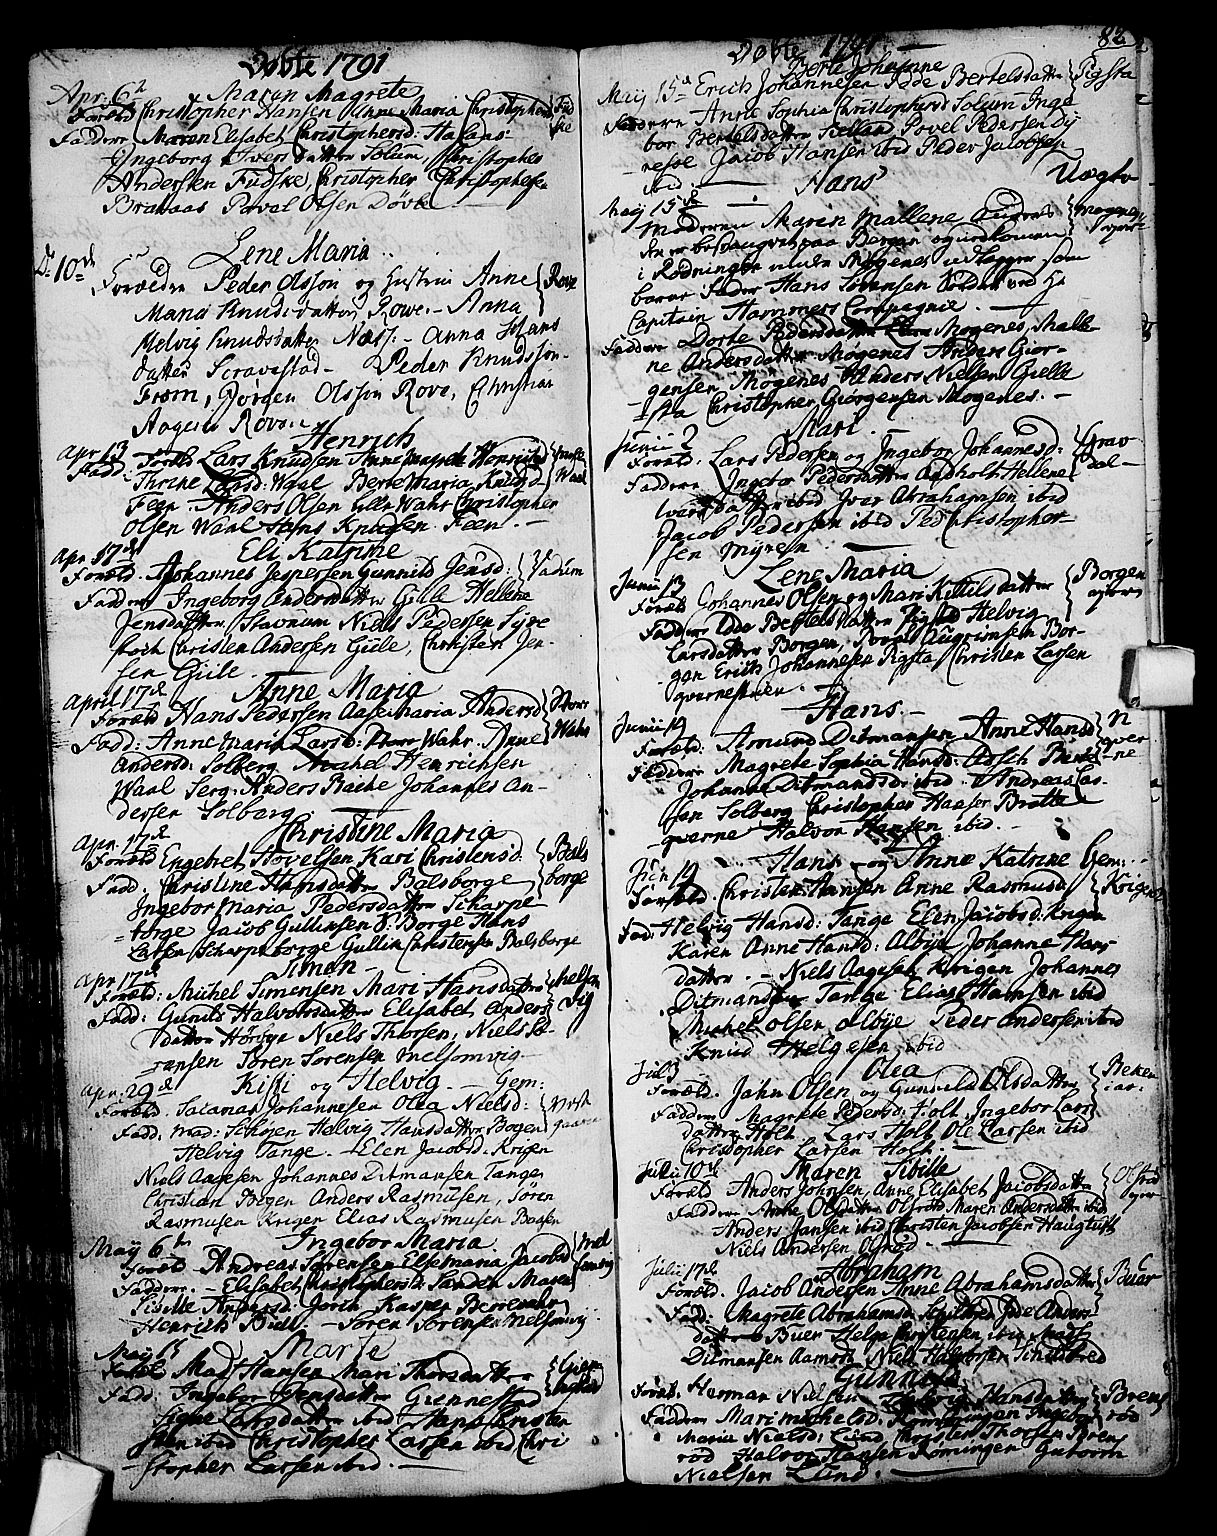 Døbte 1791
Apr. 6te Maren Magrete
Foræld Christopher Hansen Anne Maria Christophersd Fud
Faddere Maren Elisabet Christophersd: Halaas: ske
Ingeborg Iversdatter Solum, Christopher
Andersen Fudske, Christopher Christophersen
Brahaas Povel Olsen Døvle
D: 10de Lene Maria
Foræeldre Peder Olsson og Hustru Anne Rove
Maria Knudsdatter Rowe. Anna
Helvig Knudsdatter Næss. Anna Hans
datter Scravestad Peder Knudsson
From, Jørgen Olsson Rove, Christian
Aagesen Rove
Henrich
Apr 13 Foræld Lars Knudsen Anne Magrete Henrichsd
Fadd. Thrine Larsd: Waal Berte Maria Knudsd Waal
Feen. Anders Olsen Lille Wahr Christopher
Olsen Waal Hans Knudsen Feen.
Eli Katrine
Apr 17de Foræld. Johannes Jespersen Gunnild Jensd: Vadum
Faddere Ingeborg Andersdatter Giile Hellene
Jensdatter Stavnum Niels Pedersen Syse
Christen Andersen Giile, Christen Jen-
sen Giile.
Anne Maria
April 17de Foræld Hans Pedersen Aase Maria Andersd Store
Fadd: Anne Maria Larsd: Store Wahr. Anne Wahr
Andersd: Solberg Mahel Henrichsen
Waal Serg: Anders Bache Johannes An-
dersen Solberg
Christine Maria
Apr. 17de Foræld Engebret Stovelsen Kari Christensd. Bals
Fadd. Christine Hansdatter Balsborge borge
Ingebor Maria Pedersdatter Scharpe
borge Jacob Gullinsen S: Borge Hans
Larsen Scharpeborge Gullin Christensen Balsborge
Simen
Apr 17de Foræld: Michel Simensen Mari Hansdatter Melsom
Fadd: Gunild Halvorsdatter Elisabet Anders vig
datter Hørbye Niels Thorsen, Niels Sø-
rensen Søren Sørensen Melsomvig
Apr. 29de Kisti og Helvig. Gem:
Foræld. Johannesen Olea Nielsd:
Fadd. Mad: Schøjen Helvig Hansdatter Bogen
Helvig Tange. Elen Jacobsd. Krigen
Niels Aagesen Johannes Ditmansen Tangen
Christian Bogen Anders Rasmusen, Søren
Rasmusen Krigen Elias Rasmusen Bogen
May 6te Ingebor Maria
Foræld Andreas Sørensen Else Maria Jacobsd Mel
Faddere. Elisabet Christophersd: Sanden Maren somvig
Sibille Andersd. Jorth Kasper Berrevahr
Henrich Bull. Søren Sørensen Melsomvig
May 15 Marte
Foræld Mads Hansen Mari Thorsdatter
Fadd: Ingebor Jensdatter Gunnestad
Signe Larsdatter ibid Hans Christen
sen ibid Christopher Larsen ibid Chri
stopher Larsen ibid.
Døbte 1791 82
Berte Johanne
Maij 15de Erich Johannesen Ede Bertelsdatter Pigsta
Faddere Anne Sophia Christophersd Solum Inge
bor Bertelsdatter Selland Povel Pedersen Dy
resse Jacob Hansen ibid Peder Jacobsen
ibid. Hans Uægte
May 15de Moderen Maren Mallene Mogenes
besvangret paa Bergen og nedkommen
i Rødningen under Mogenes udlægger som
barne Fader Hans Sørensen Soldat ved H:
Capitain Hammers Compagnie
Faddere Dorte Pedersdatter Mogenes, Malle-
ne Andersdatter Møgenes Anders Giør-
gensen Mogenes Anders Nielsen Gielle
sta Christopher Giørgensen Mogenes.
Mari.
Junii 2 Foræld. Lars Pedersen og Ingebor Johannesd: Grav
Faddere Ingebor Pedersdatter Aadholt Hellene dal
Ivarsdatter ibid Iver Abrahamsen ibid
Jacob Pedersen ibid Ped Christopher-
sen Myren.
Lene Maria
Junii 13 Foræld Johannes Olsen og Mari Kittilsdatter Borgen
Faddere Ede Bertelsdatter Pigstad Helvig
Larsdatter Borgen, Povel Augrimsen Bor-
gen Erich Johannesen Pigsta Christen Larsen
qvernestuen
Hans.
Junii 19 Foræld. Amund Ditmansen Anne Hansd
Faddere Magrete Sophia Hansd: Adsch
Johanne Ditmandsdr ibid. Andreas Las-
sen Solberg Christopher Haaser Brotte
qvarne Halvor Hansen ibid.
Jun 19 Hans og Anne Katrine Gem:
Foræld. Christen Hansen Anne Rasmusd Krigen
Fad: Helvig Hansd: Tange Elen Jacobsd: Krigen
Karen Anne Hansd: Albye Johanne Hans
datter. Niels Aagesen Krigen Johannes
Ditmandsen Tange Elias Hansen ibid
Michel Olsen Albye Peder Andersen ibid
Knud Helgesen ibid
Jul 3 Olea
Foræld. John Olsen og Gunnild Olsdatter
Faddere Magrete Pedersd: Holt. Ingebor Lars
datter Holt Lars Holt Ole Larsen ibid
Christopher Larsen Holt.
Julii 10de Maren Sibille
Foræld Anders Johnsen, Anne Elisabet Jacobsdatter
Faddere Anne Olsdatter Olsrød Maren Andersdatter ibid
Anders Jansen ibid Christen Jacobsen Haugtuft
Niels Andersen Olsrød
Julii 17de Abraham
Foræld. Jacob Andersen Anne Abrahamsdatter Buær
Fad: Magrete Abrahamsen Anders
datter Buer Helge Christensen ibid Mads
Ditmansen Aamodt Niels Halvorsen Schildbred
Gunnild
Foræld. Herman Nielsen Hansdatter Børens
Faddere Mari Michelsd: Rømmingen Ingebor rød
Maria Nielsd: Lund Christen Thorsen Børens
rød Halvor Hansen Rømingen Guttorm
Nielsen Lund.